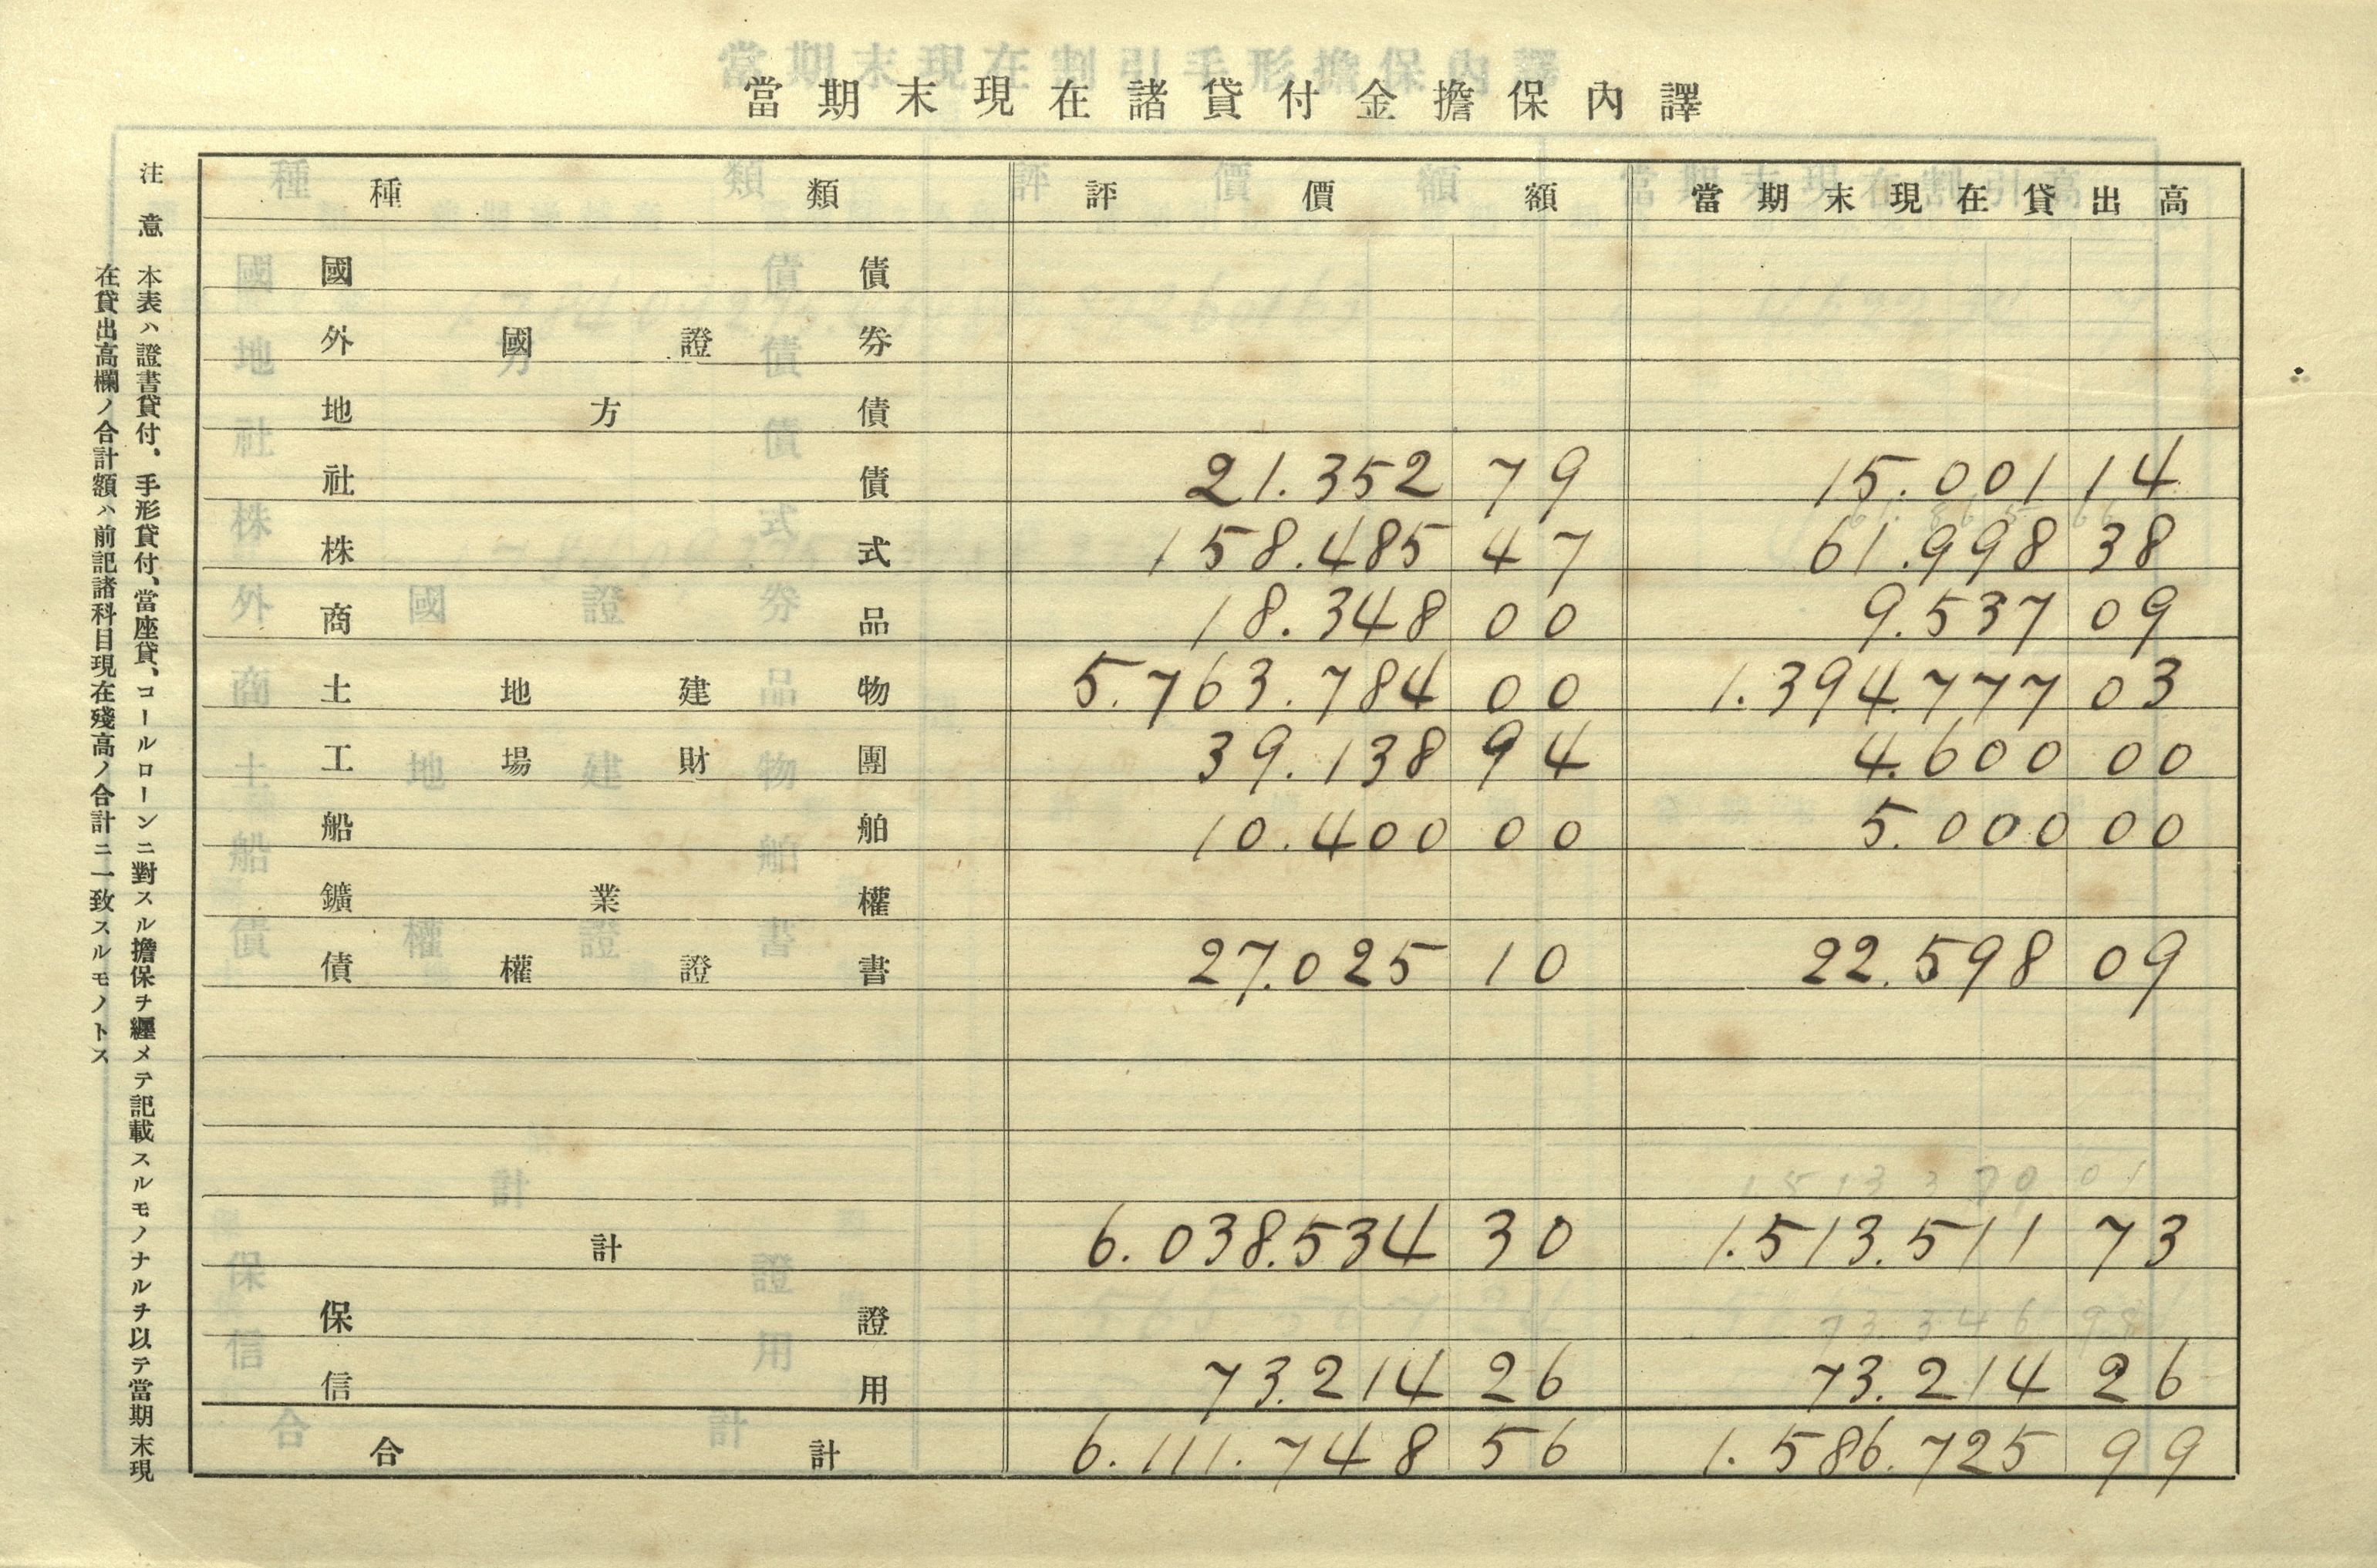 當期末現在諸貸付金擔保內譯
種類 評價額 當期末現在貸出高
國債
外國證券
地方債
社債 21.352 79 15.001 14
株式 158.485 47 61.998 38
商品 18.348 00 9.537 09
土地建物 5.763.784 00 1.394.777 03
工場財團 39.138 94 4.600 00
船舶 10.400 00 5.000 00
鑛業權
債權證書 27.025 10 22.598 09
計 6.038.534 30 1.513.511 73
保證
信用 73.214 26 73.214 26
合計 6.111.748 56 1.586.725 99
注意 本表ハ證書貸付、手形貸付、當座貸、コールローンニ對スル擔保ヲ纒メテ記載スルモノナルヲ以テ當期末現
在貸出高欄ノ合計額ハ前記諸科目現在殘高ノ合計ニ一致スルモノトス